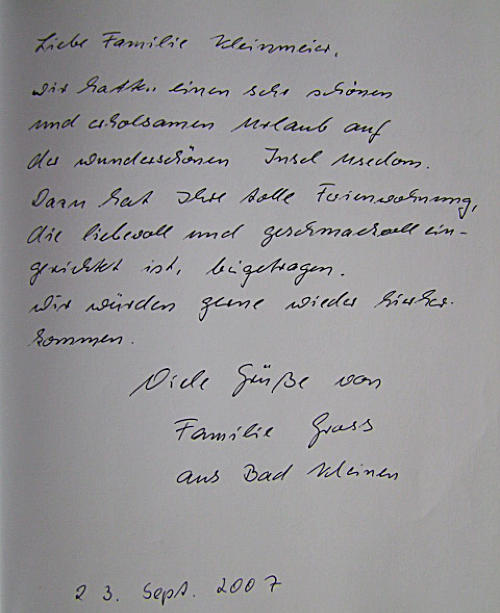 Liebe Familie Kleinmeier,
wir hatten einen sehr schönen
und erholsamen Urlaub auf
der wunderschönen Insel Usedom.
Dazu hat Ihre tolle Ferienwohnung,
die liebevoll und geschmackvoll ein-
gerichtet ist, beigetragen.
Wir würden gerne wieder hierher-
kommen.
Viele Grüße von
Familie Grass
aus Bad Kleinen
23. Sept. 2007